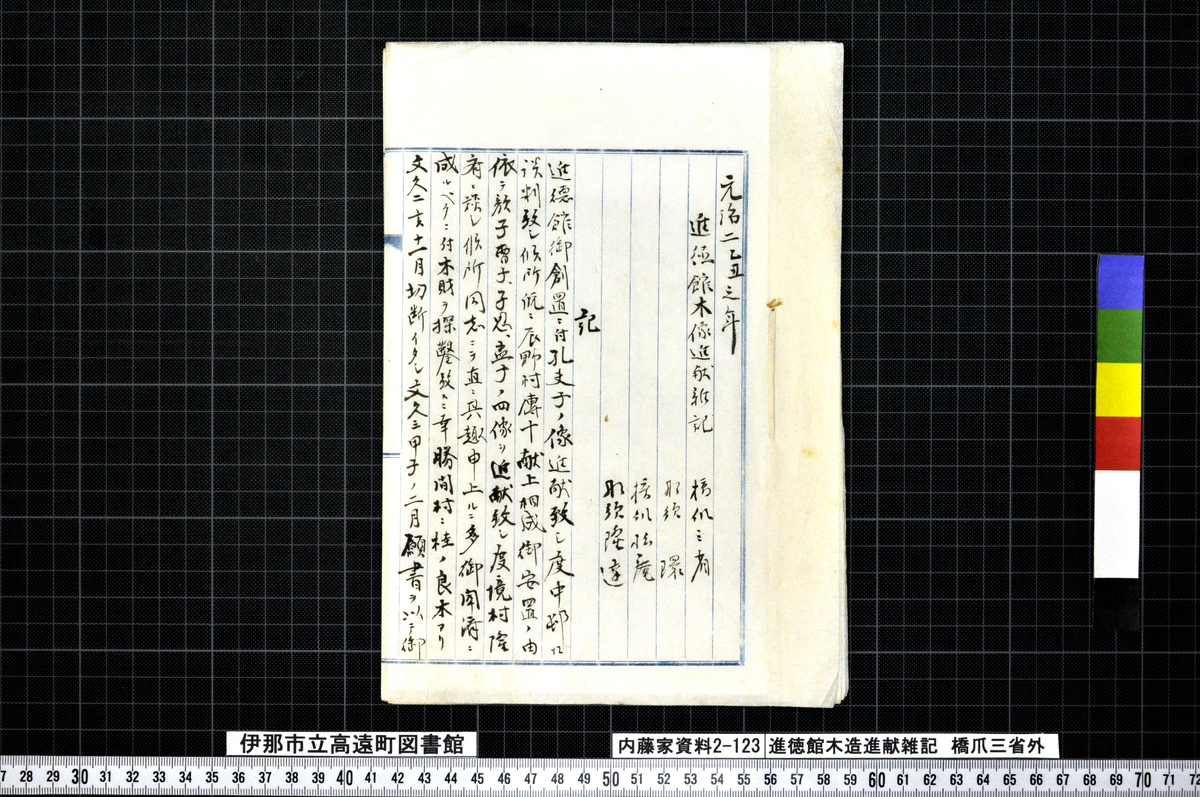 元治二乙丑三年
進徳館木像進献雑記
橋爪三省
那須 環
橋爪松庵
那須隆達
記
進徳館御創置ニ付孔夫子ノ像進献致シ度中邨ニ
談判致シ候所既ニ辰野村傳十献上相成御安置ノ由
依テ顔子曽子、子思、孟子ノ四像ヲ進献致シ度境村隆
府ニ談シ候所同志ニテ直ニ其趣申上ルニ多御聞済ニ
成ルベクニ付木財ヲ探鑿致スニ幸勝間村ニ桂ノ良木アリ
文久二 十一月切断イタシ文久三甲子ノ二月願書ヲ以テ御
伊那市立高遠町図書館
内藤家資料2-123 進徳館木造進献雑記 橋爪三省外
7 28 29 30 31 32 33 34 35 36 37 38 39 40 41 42 43 44 45 46 47 48 49 50 51 52 53 54 55 56 57 58 59 60 61 62 63 64 65 66 67 68 69 70 71 72